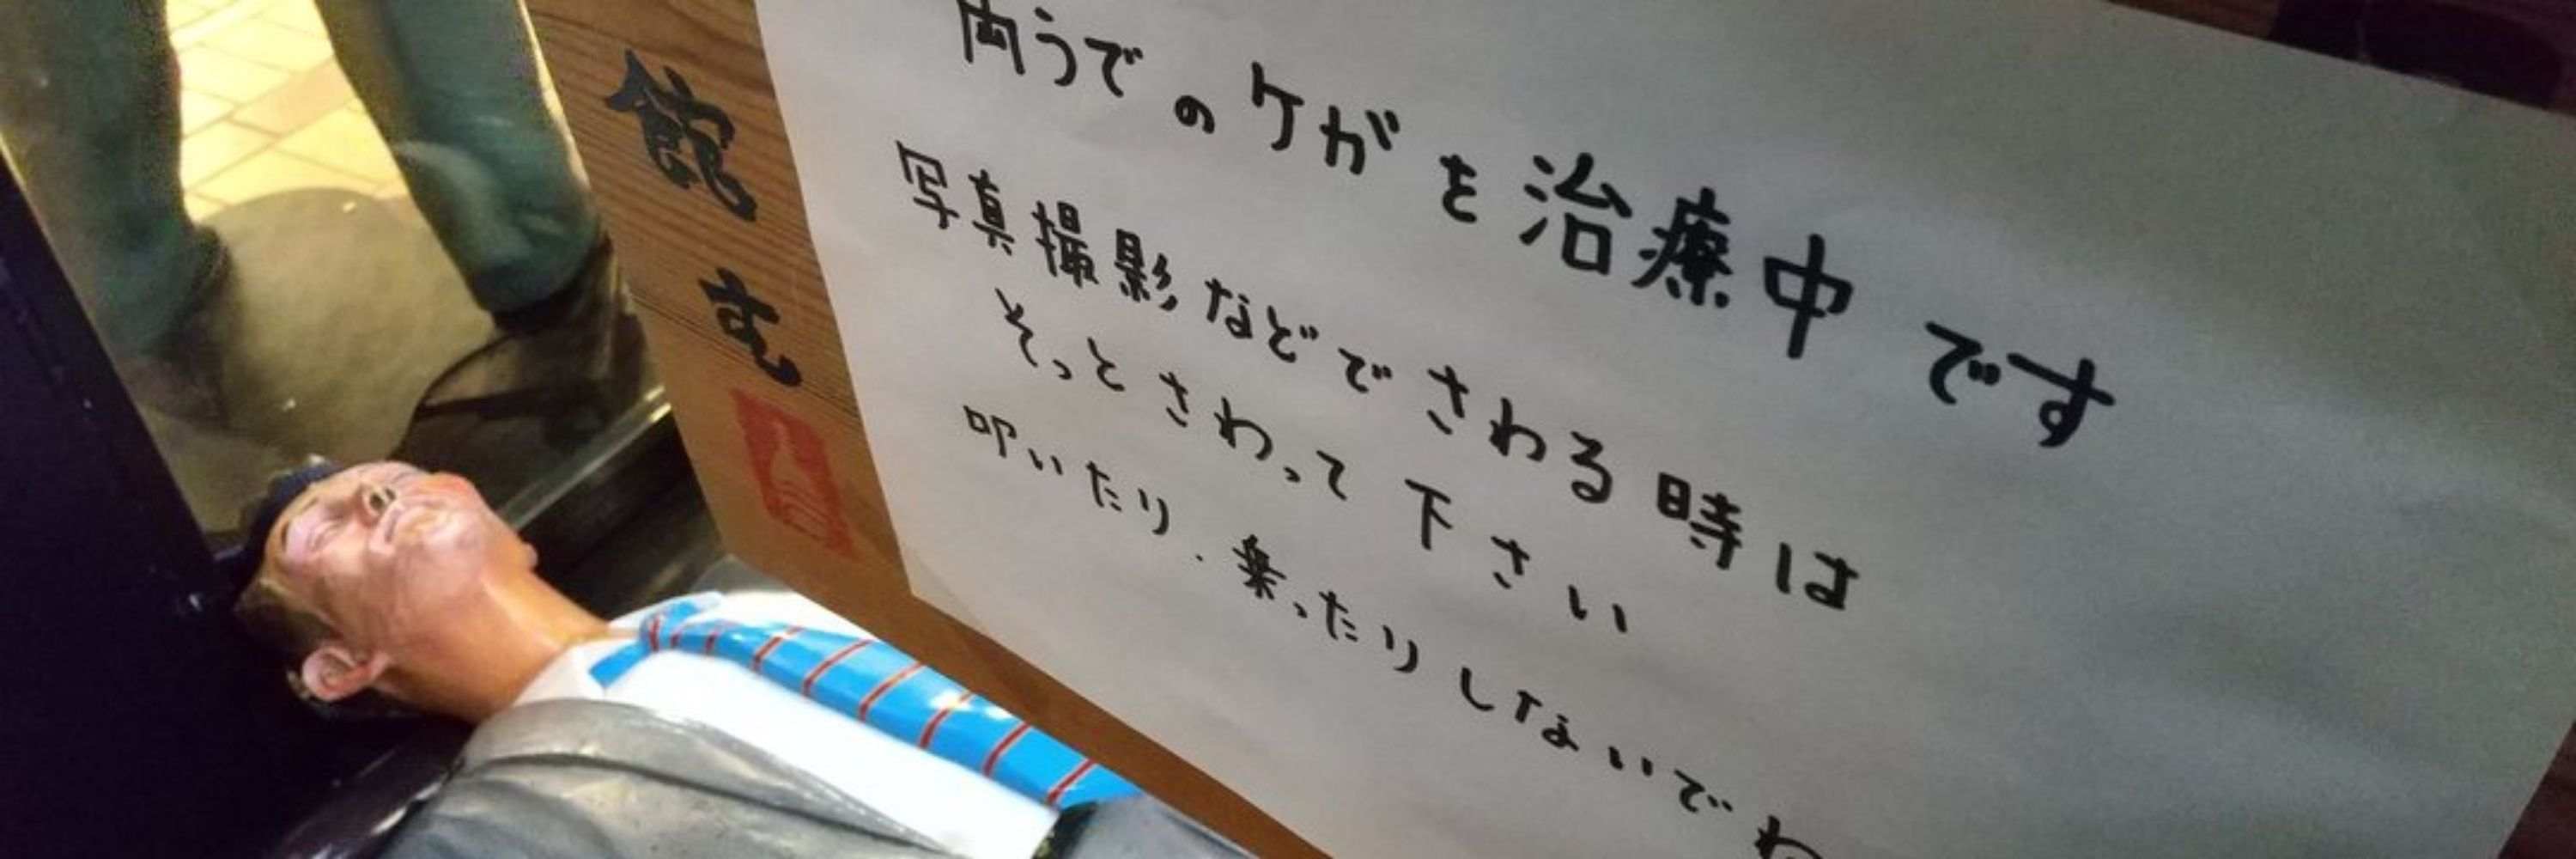 館主
両うでのケガを治療中です
写真撮影などでさわる時は
そっとさわって下さい
叩いたり、乗ったりしないでね